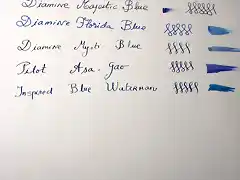 Diamine Majestic Blue
Diamine Florida Blue
Diamine Mystic Blue
Pilot Asa-gao
Inspired Blue Waterman